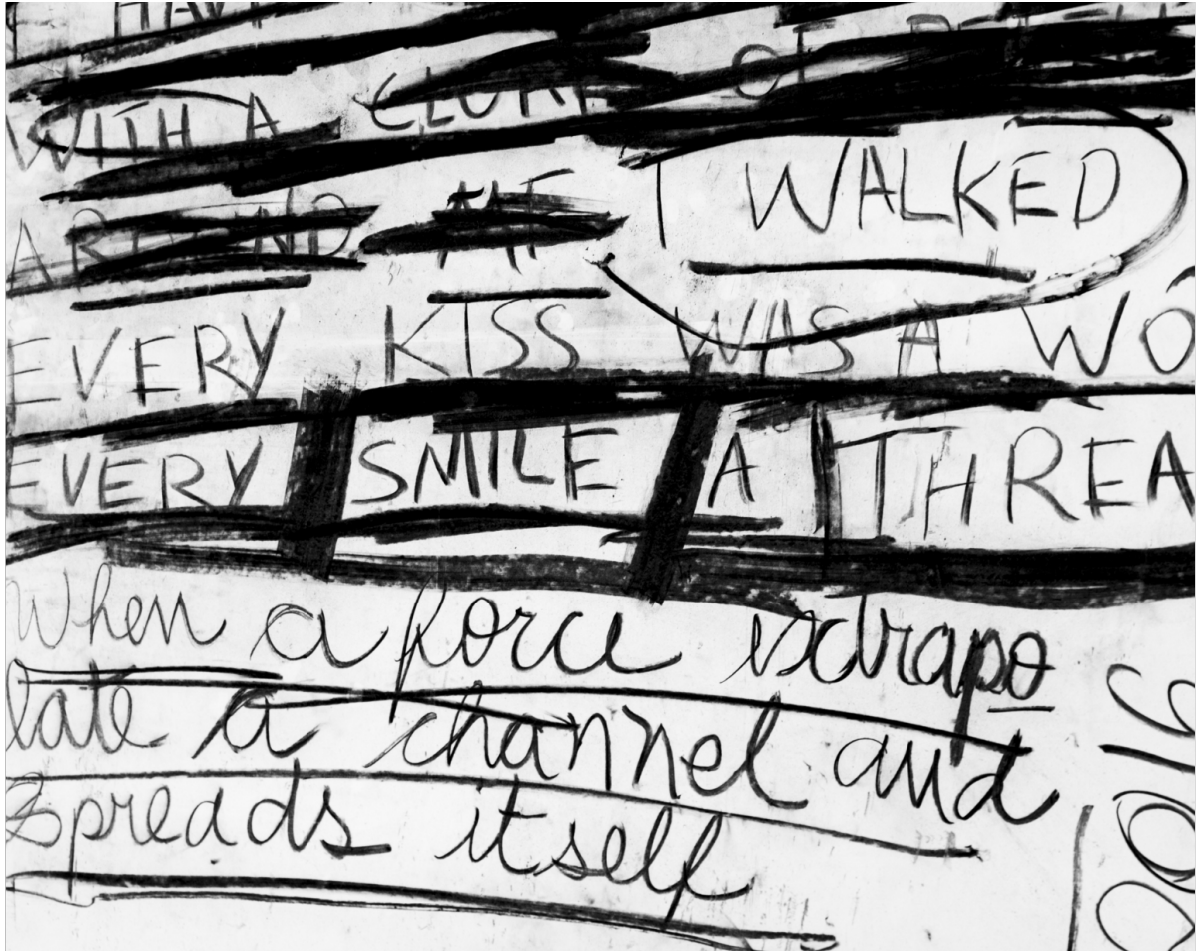 I HAVE
WITH A CLOAK OF
AROUND ME I WALKED
EVERY KISS WAS A WO
EVERY SMILE A THREA
When a force extrapo
late a channel and
spreads itself